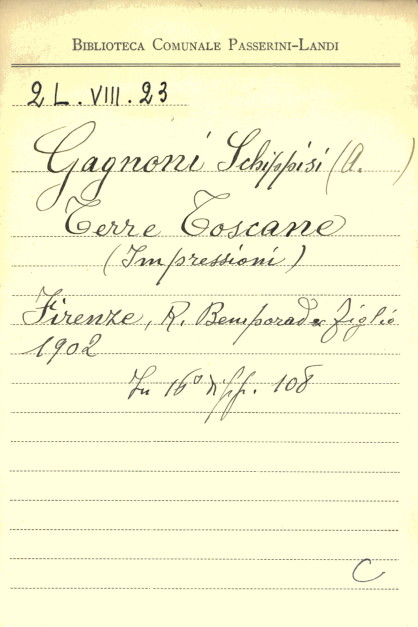 BIBLIOTECA COMUNALE PASSERINI-LANDI
2 L. VIII. 23
Gagnoni Schippisi (A. )
Terre Toscane
(Impressioni)
Firenze, R. Bemporad & figlio
1902
In 16° di pp. 108
C